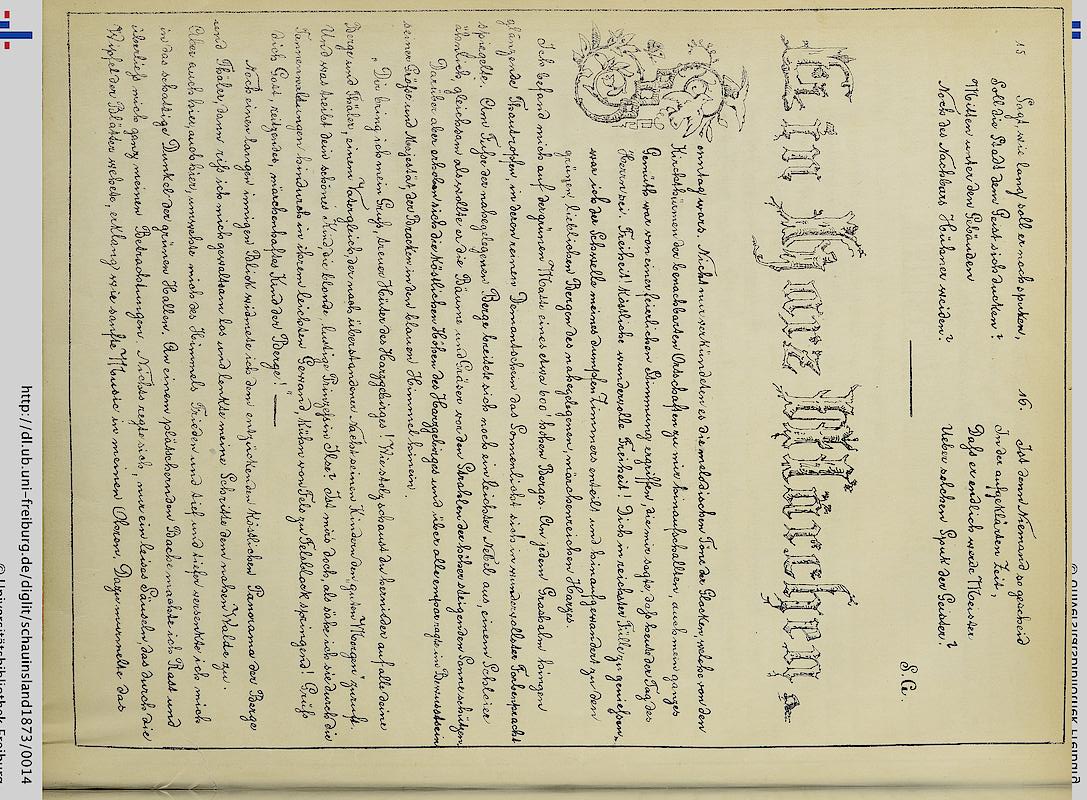 15
Sagt, wie lang' soll er noch spuken,
Soll die Stadt dem Geist sich ducken?
Mitten unter den Gebäuden
Noch des Nachbars Hühner weiden?
16.
Ist denn Niemand so gescheid
In der aufgeklärten Zeit,
Daß er endlich werde Meister
Ueber solchen Spuk der Geister?
S. G.
onntag wars. Nicht nur verkündeten es die melodischen Töne der Glocken, welche von den
Kirchthürmen der benachbarten Ortschaften zu mir heraufschallten, auch mein ganzes
Gemüth war von einer feierlichen Stimmung ergriffen, die mir sagte, daß heute der Tag des
Herrn sei. Freiheit! köstliche wundervolle Freiheit! Dich in reichster Fülle zu genießen,
war ich der Schwelle meines dumpfen Zimmers enteilt und hinaufgewandert zu den
grünen lieblichen Bergen des nahegelegenen, märchenreichen Harzes.
Ich befand mich auf der grünen Matte eines etwa 600' hohen Berges. An jedem Grashalm hingen
glänzende Thautropfen, in deren reinem Demantschein das Sonnenlicht sich in wundervollster Farbenpracht
spiegelte. Am Fuße der nahegelegenen Berge breitete sich noch ein leichter Nebel aus, einem Schleier
ähnlich, gleichsam als wollte er die Bäume und Gräser vor den Strahlen der höher steigenden Sonne schützen.
Darüber aber erhoben sich die köstlichen Höhen des Harzgebirges und über alle empor ragte im Bewusstsein
seiner Größe und Majestät, der Brocken in den blauen Himmel hinein.
„Dir bring' ich mein Gruß, treuer Hüter des Harzgebirges! Wie stolz schaust du hernieder auf alle deine
Berge und Thäler, einem Vater gleich, der nach überstandener Nacht seinen Kindern den „guten Morgen" zuruft.
Und was treibt dein schönes Kind, die blonde lustige Prinzessin Ilse? Ist mirs doch, als sähe ich sie durch die
Tannenwaldungen hindurch in ihrem leichten Gewand, kühn von Fels zu Felsblock springend! Grüß
dich Gott, reizendes, märchenhaftes Kind der Berge!
Noch einen langen innigen Blick widmete ich dem entzückenden köstlichen Panorama der Berge
und Thäler, dann riß ich mich gewaltsam los und lenkte meine Schritte dem nahen Walde zu.
Aber auch hier, auch hier, umwehte mich des Himmels Frieden und tief und tiefer versenkte ich mich
in das schattige Dunkel der grünen Hallen. An einem plätschernden Bache machte ich Rast und
überließ mich ganz meinen Betrachtungen. Nichts regte sich, nur ein leises Säuseln, das durch die
Wipfel der Blätter webete, erklang wie sanfte Music in meinen Ohren. Dazu murmelte das
http://dl.ub.uni-freiburg.de/diglit/schauinsland1873/0014
© Universitätsbibliothek Freiburg